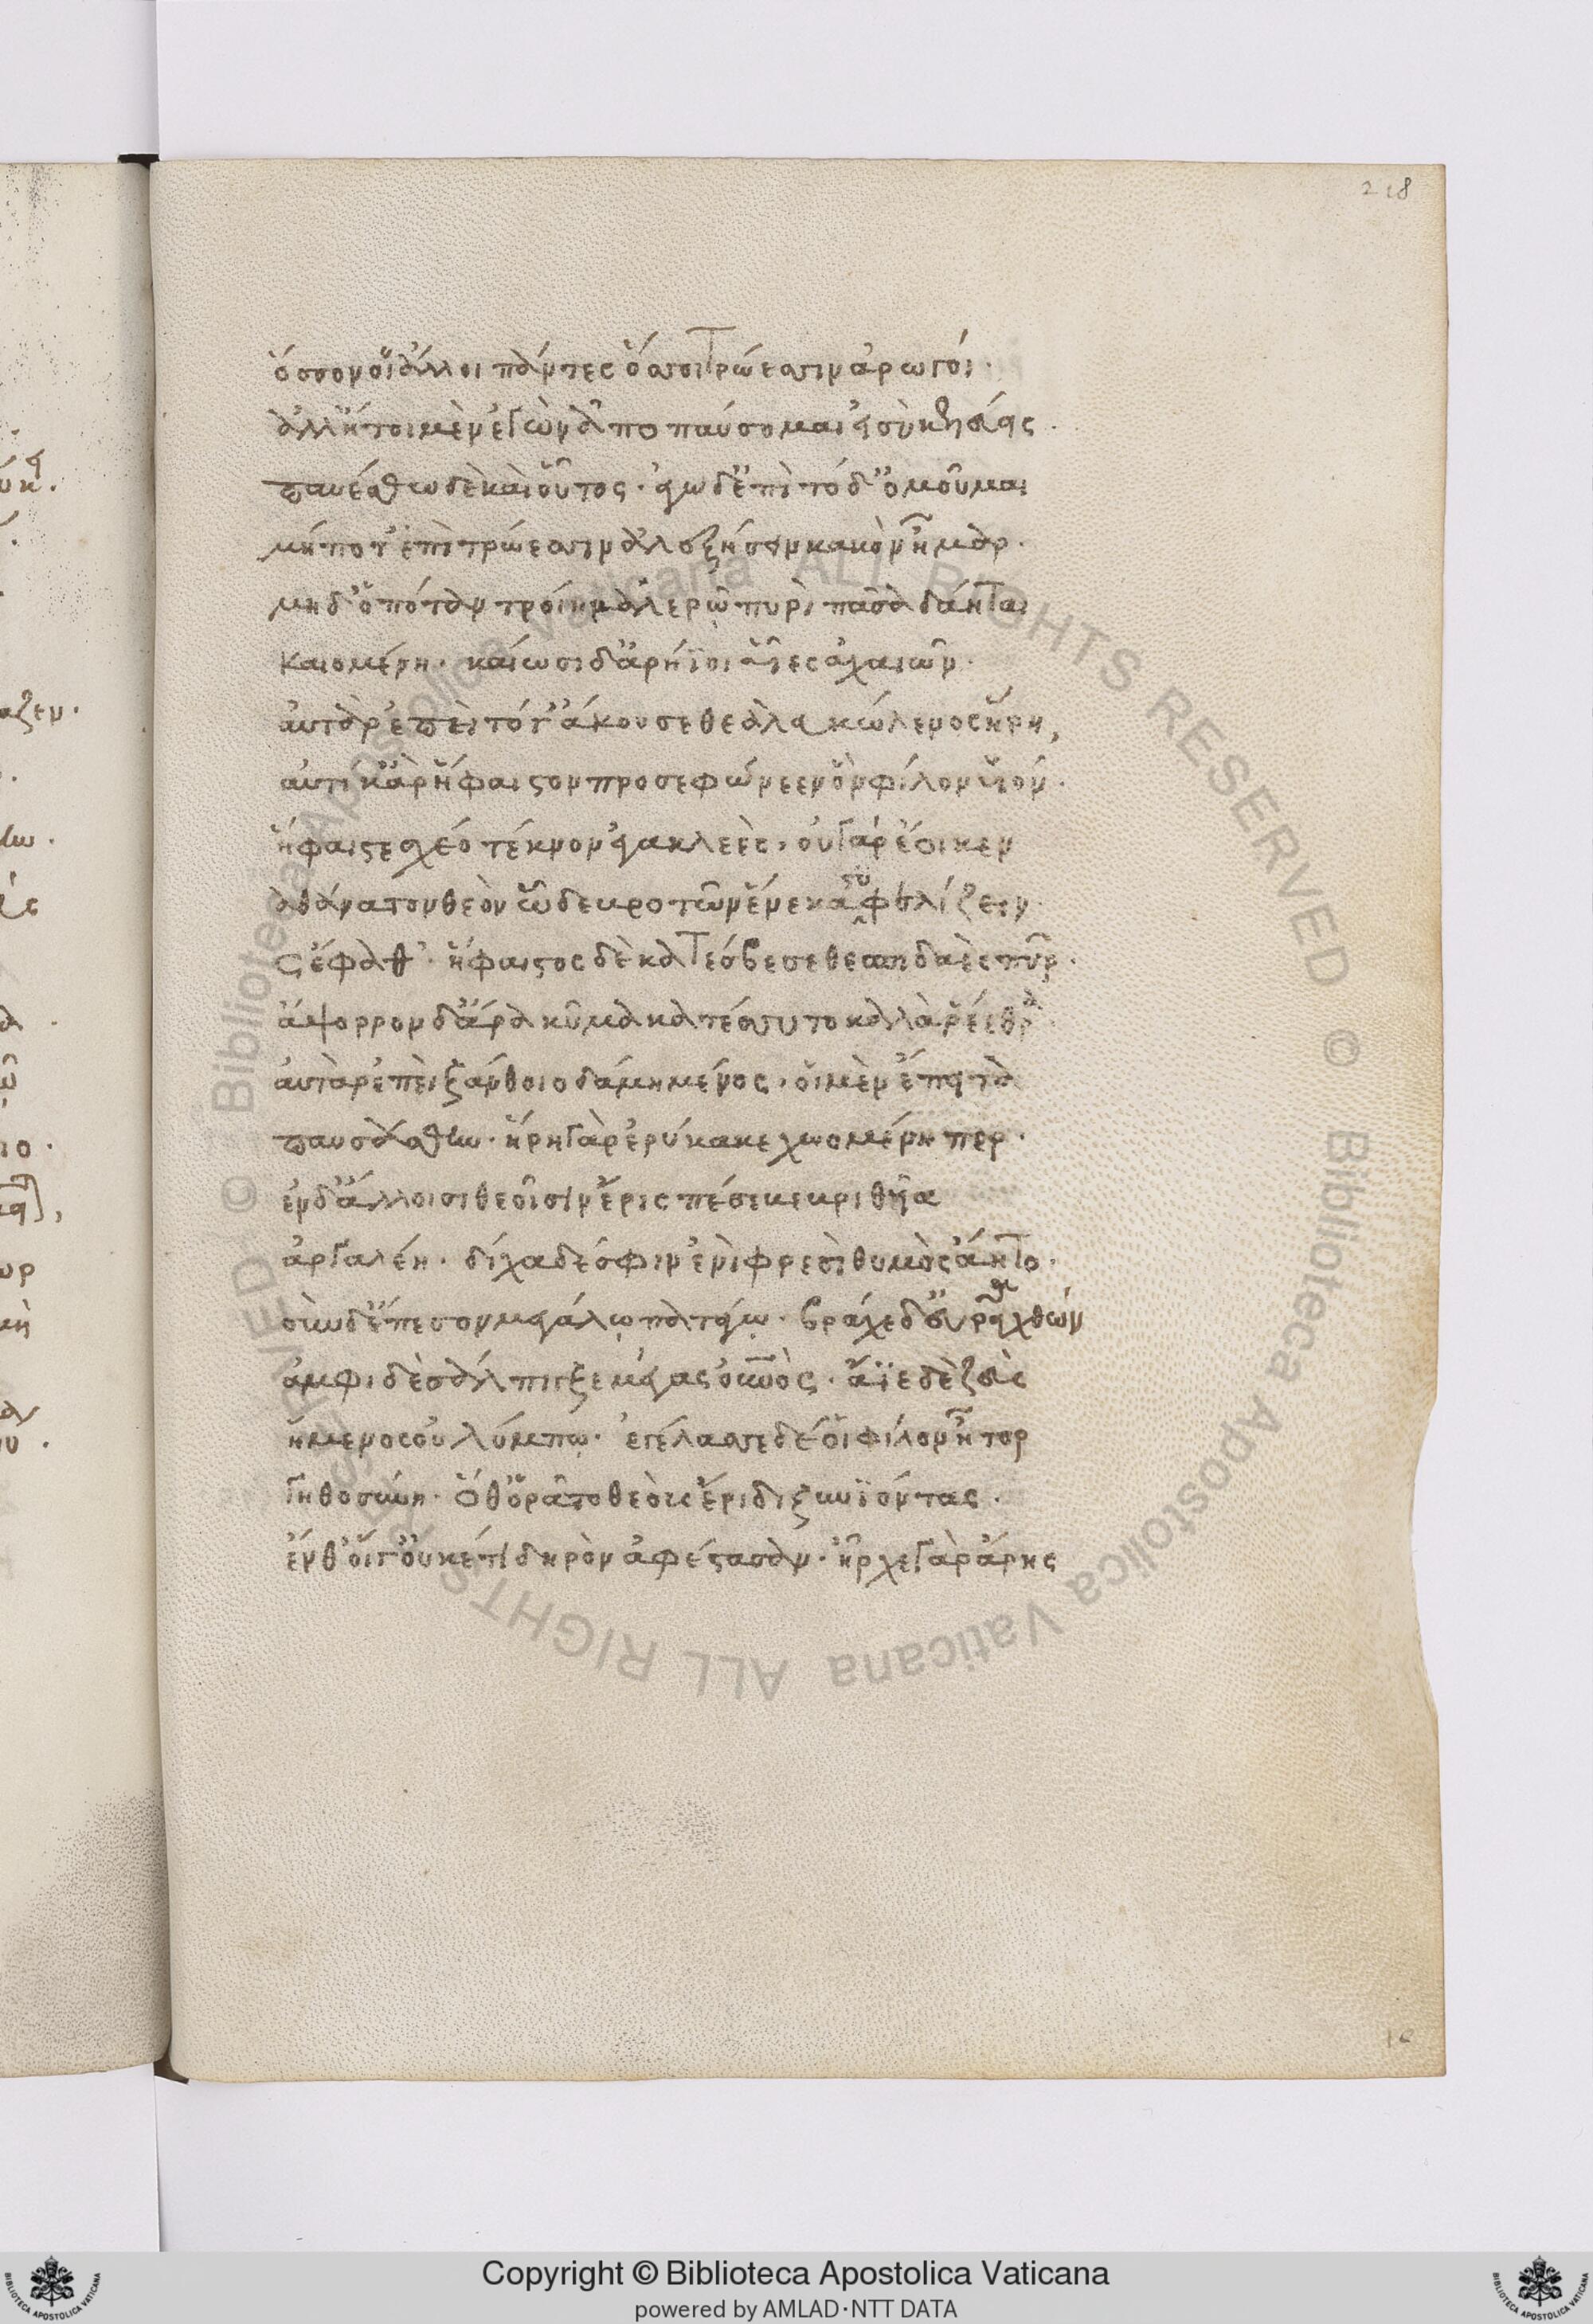 218
ὅσσον οἱ ἄλλοι πάντες ὅσσοι τρώεσσιν ἀρωγοί·
ἀλλ' ἤτοι μὲν ἐγὼν ἀποπαύσομαι εἰ σὺ κελεύεις·
παυέσθω δὲ καὶ οὗτος· ἐγὼ δ' ἐπὶ τόδ' ὀμοῦμαι
μή ποτ' ἐπὶ τρώεσσιν ἀλεξήσειν κακὸν ἦμαρ·
μηδ' ὁπότ' ἂν τροίη μαλερῷ πυρὶ πᾶσα δάηται
καιομένη· καίωσι δ' ἀρήϊοι υἷες ἀχαιῶν·
αὐτὰρ ἐπεὶ τό γ' ἄκουσε θεὰ λευκώλενος ἥρη,
αὐτίκ' ἄρ' ἥφαιστον προσεφώνεεν ὃν φίλον υἱόν·
ἥφαιστε σχέο τέκνον ἀγακλεές· οὐ γὰρ ἔοικεν
ἀθάνατον θεὸν ὧδε βροτῶν ἕνεκα στυφελίζειν·
ὣς ἔφαθ'· ἥφαιστος δὲ κατέσβεσε θεσπιδαὲς πῦρ·
ἄψορρον δ' ἄρα κῦμα κατέσσυτο καλὰ ῥέεθρα·
αὐτὰρ ἐπεὶ ξάνθοιο δάμη μένος· οἱ μὲν ἔπειτα
παυσάσθην· ἥρη γὰρ ἐρύκακε χωομένη περ·
ἐν δ' ἄλλοισι θεοῖσιν ἔρις πέσε βεβριθῦα
ἀργαλέη· δίχα δέ σφιν ἐνὶ φρεσὶ θυμὸς ἄητο·
σὺν δ' ἔπεσον μεγάλῳ πατάγῳ· βράχε δ' εὐρεῖα χθών
ἀμφὶ δὲ σάλπιγξεν μέγας οὐρανός· ἄϊε δὲ ζεὺς
ἥμενος οὐλύμπῳ· ἐγέλασσε δέ οἱ φίλον ἦτορ
γηθοσύνῃ· ὅθ' ὁρᾶτο θεοὺς ἔριδι ξυνϊόντας·
ἔνθ' οἵ γ' οὐκέτι δηρὸν ἀφέστασαν· ἦρχε γὰρ ἄρης
Copyright © Biblioteca Apostolica Vaticana
powered by AMLAD·NTT DATA